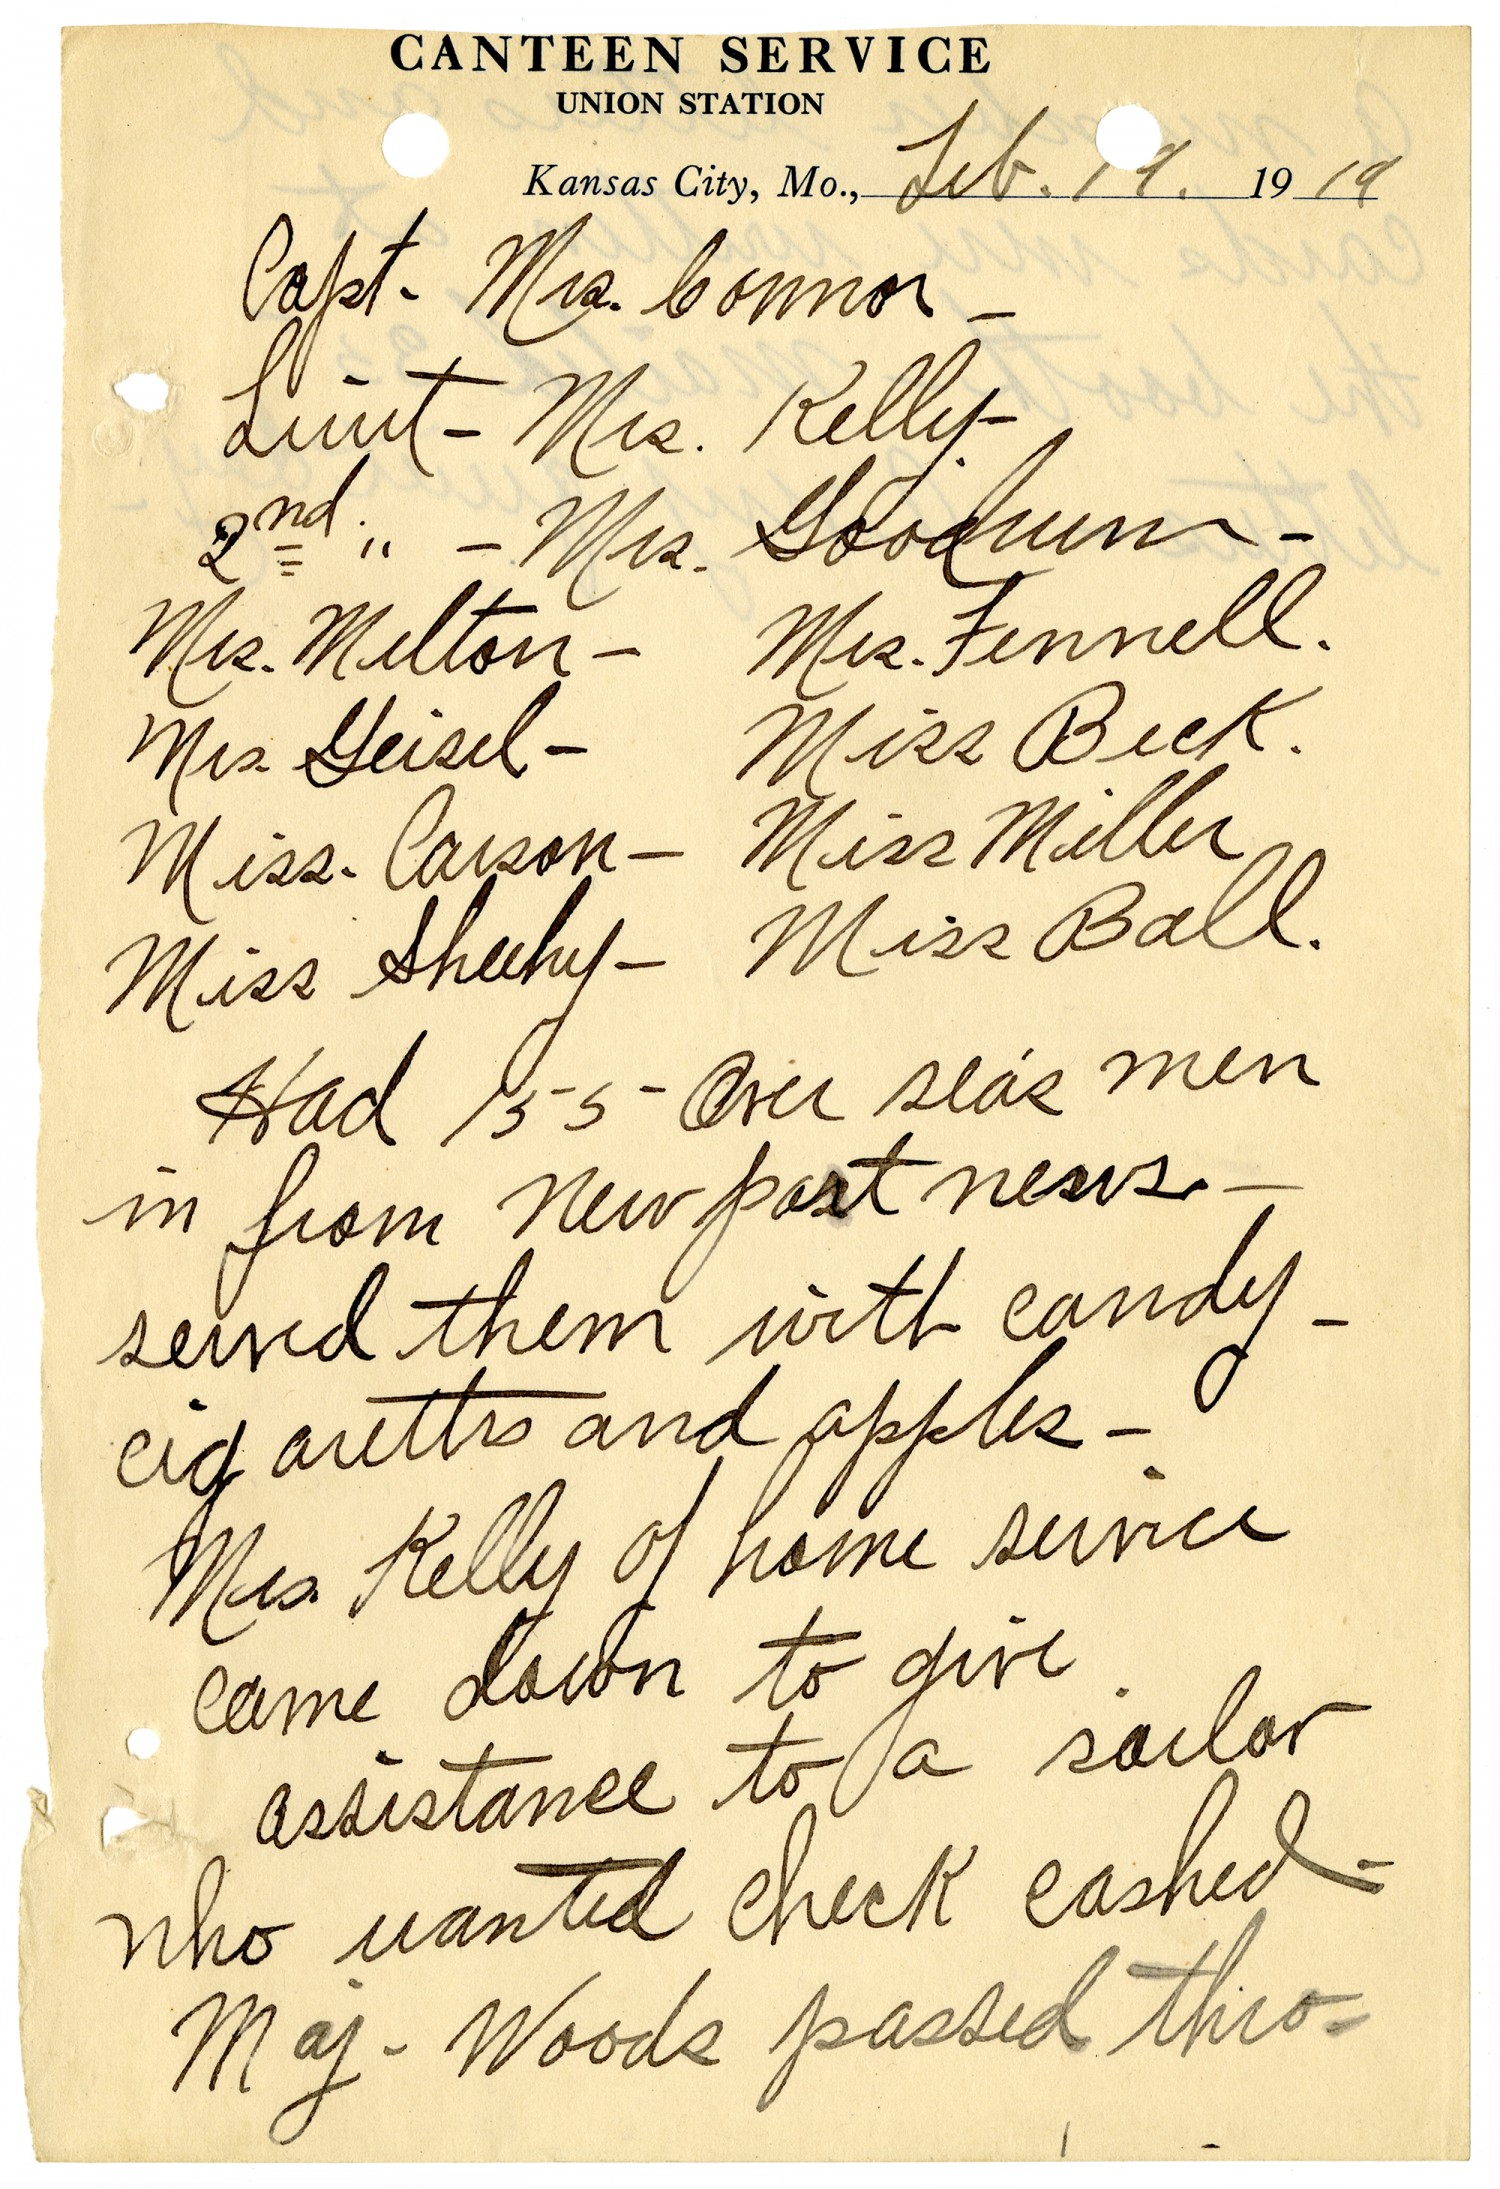 CANTEEN SERVICE
UNION STATION
Kansas City, Mo., Feb. 19. 1919
Capt- Mrs. Connor –
Lieut – Mrs. Kelly –
2nd. " – Mrs. Goodrum –
Mrs. Melton – Mrs. Fennell.
Mrs. Geisel – Miss Beck.
Miss. Carson – Miss Miller
Miss Sheehy – Miss Ball.
Had 155 – Over seas men
in from Newport news. –
served them with candy –
cigarettes and apples –
Mrs. Kelly of home service
came down to give
assistance to a sailor
who wanted check cashed –
Maj – Woods passed thro –